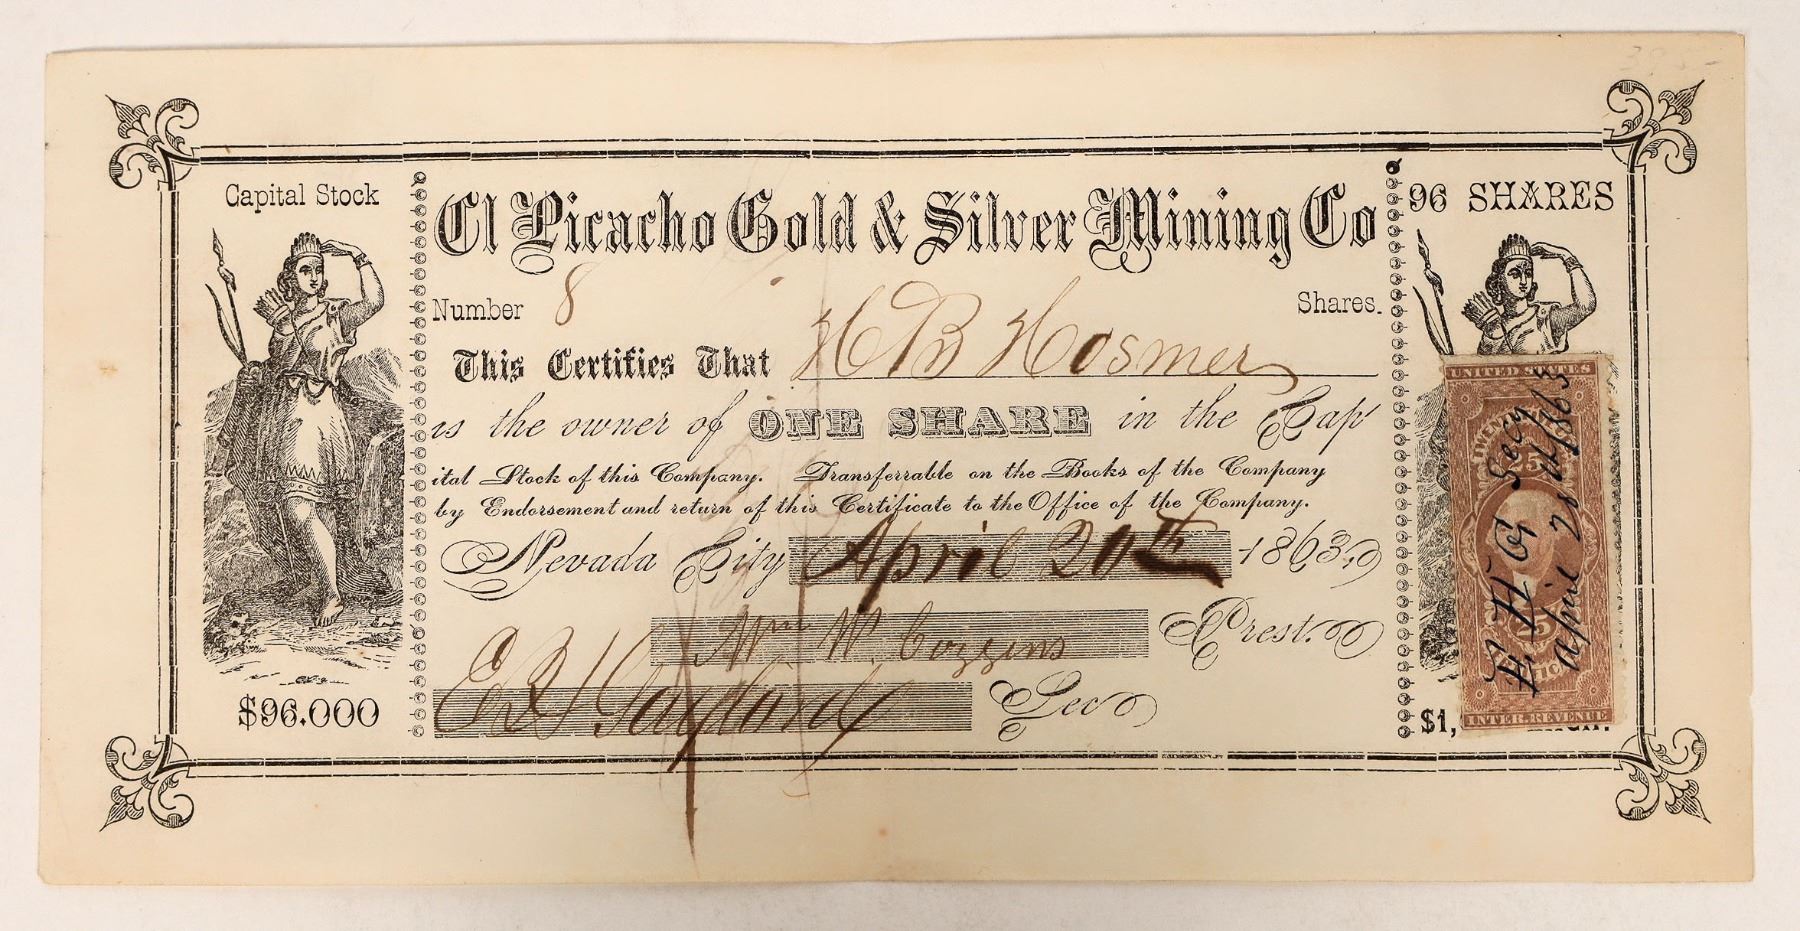 Capital Stock
$96.000
El Picacho Gold & Silver Mining Co
Number 8 Shares.
This Certifies That H B Hosmer
is the owner of ONE SHARE in the Cap
ital Stock of this Company. Transferrable on the Books of the Company
by Endorsement and return of this Certificate to the Office of the Company.
Nevada City April 20th 1863.
Wm W Cozzens Prest.
E B Gaylord Sec
96 SHARES
$1,
UNITED STATES
25
25
INTER. REVENUE
H G Secy
April 20th/1863